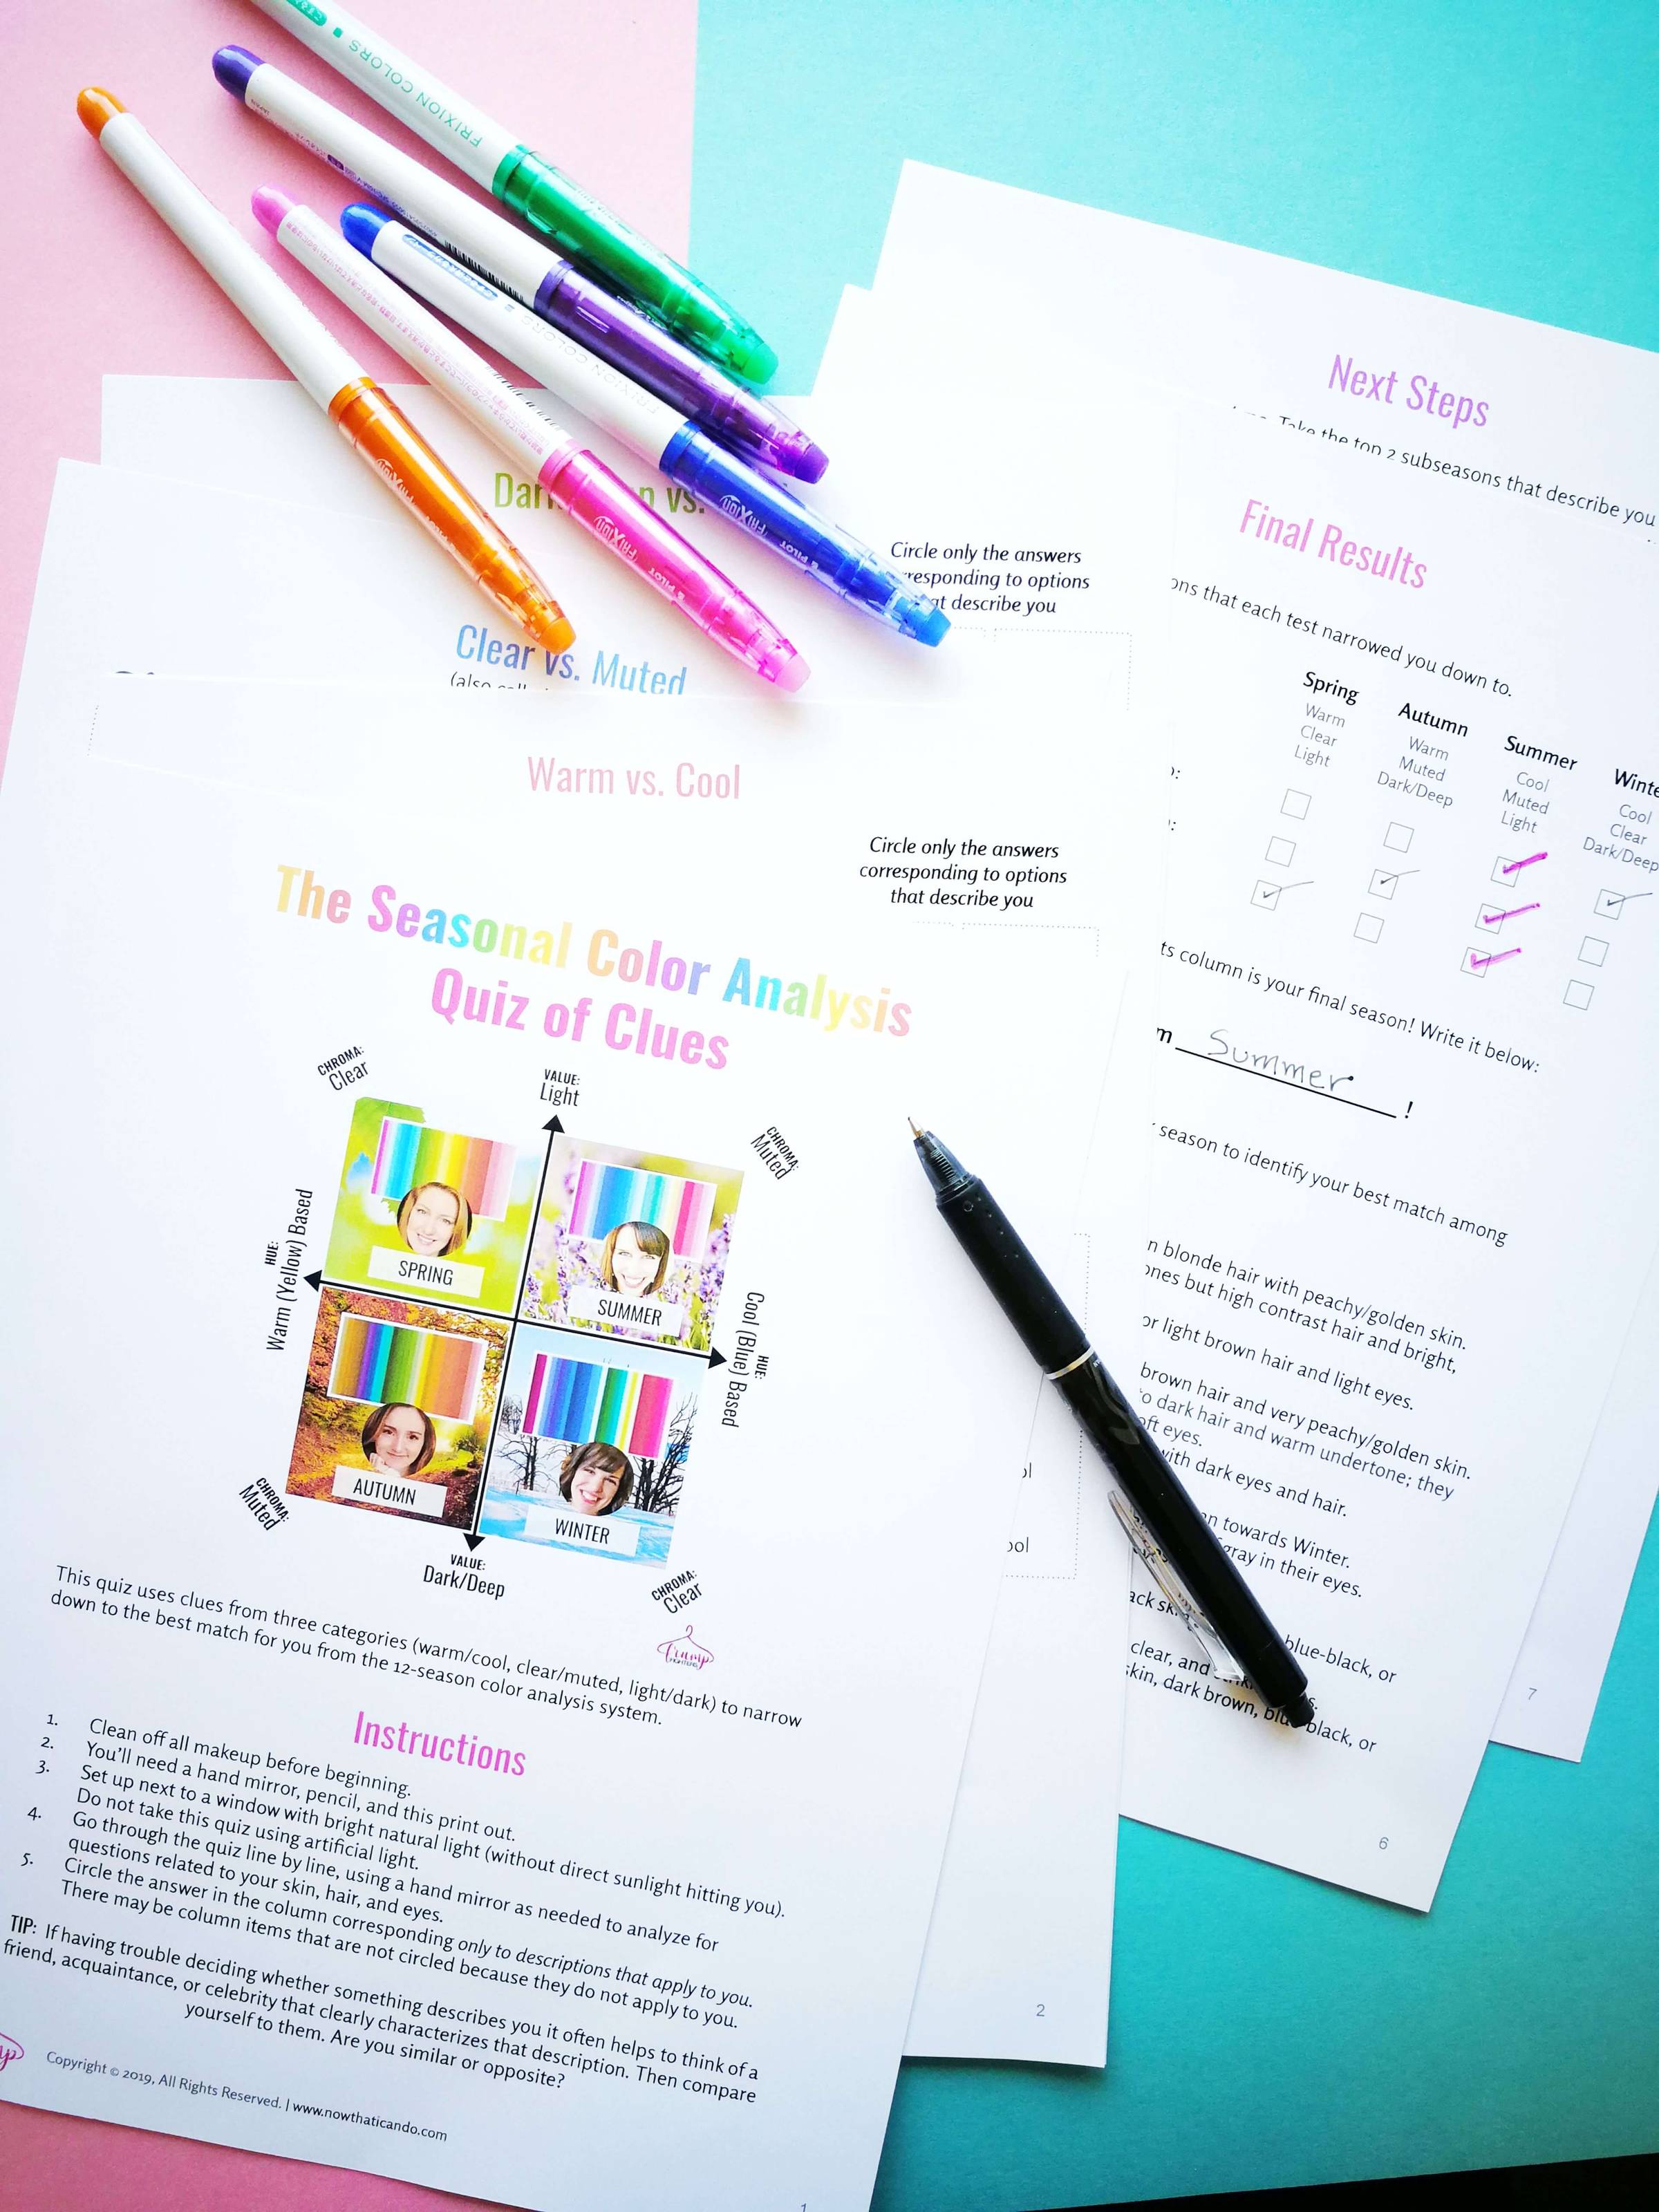 FRIXION COLORS
FRIXION COLORS
FRIXION
FRIXION
PILOT
FRIXION
PILOT
Next Steps
Take the top 2 subseasons that describe you
Final Results
ons that each test narrowed you down to.
Spring
Warm
Clear
Light
Autumn
Warm
Muted
Dark/Deep
Summer
Cool
Muted
Light
Winte
Cool
Clear
Dark/Deep
ts column is your final season! Write it below:
m Summer !
season to identify your best match among
n blonde hair with peachy/golden skin.
ones but high contrast hair and bright,
or light brown hair and light eyes.
brown hair and very peachy/golden skin.
o dark hair and warm undertone; they
oft eyes.
with dark eyes and hair.
on towards Winter.
gray in their eyes.
blue-black, or
clear, and
skin, dark brown, blue-black, or
7
6
Circle only the answers
rresponding to options
at describe you
Clear vs. Muted
Warm vs. Cool
Circle only the answers
corresponding to options
that describe you
ol
ool
2
The Seasonal Color Analysis
Quiz of Clues
CHROMA:
Clear
VALUE:
Light
CHROMA:
Muted
HUE:
Warm (Yellow) Based
SPRING
SUMMER
HUE:
Cool (Blue) Based
AUTUMN
WINTER
CHROMA:
Muted
VALUE:
Dark/Deep
CHROMA:
Clear
This quiz uses clues from three categories (warm/cool, clear/muted, light/dark) to narrow
down to the best match for you from the 12-season color analysis system.
Instructions
1. Clean off all makeup before beginning.
2. You'll need a hand mirror, pencil, and this print out.
3. Set up next to a window with bright natural light (without direct sunlight hitting you).
Do not take this quiz using artificial light.
4. Go through the quiz line by line, using a hand mirror as needed to analyze for
questions related to your skin, hair, and eyes.
5. Circle the answer in the column corresponding only to descriptions that apply to you.
There may be column items that are not circled because they do not apply to you.
TIP: If having trouble deciding whether something describes you it often helps to think of a
friend, acquaintance, or celebrity that clearly characterizes that description. Then compare
yourself to them. Are you similar or opposite?
Copyright © 2019, All Rights Reserved. | www.nowthaticando.com
1